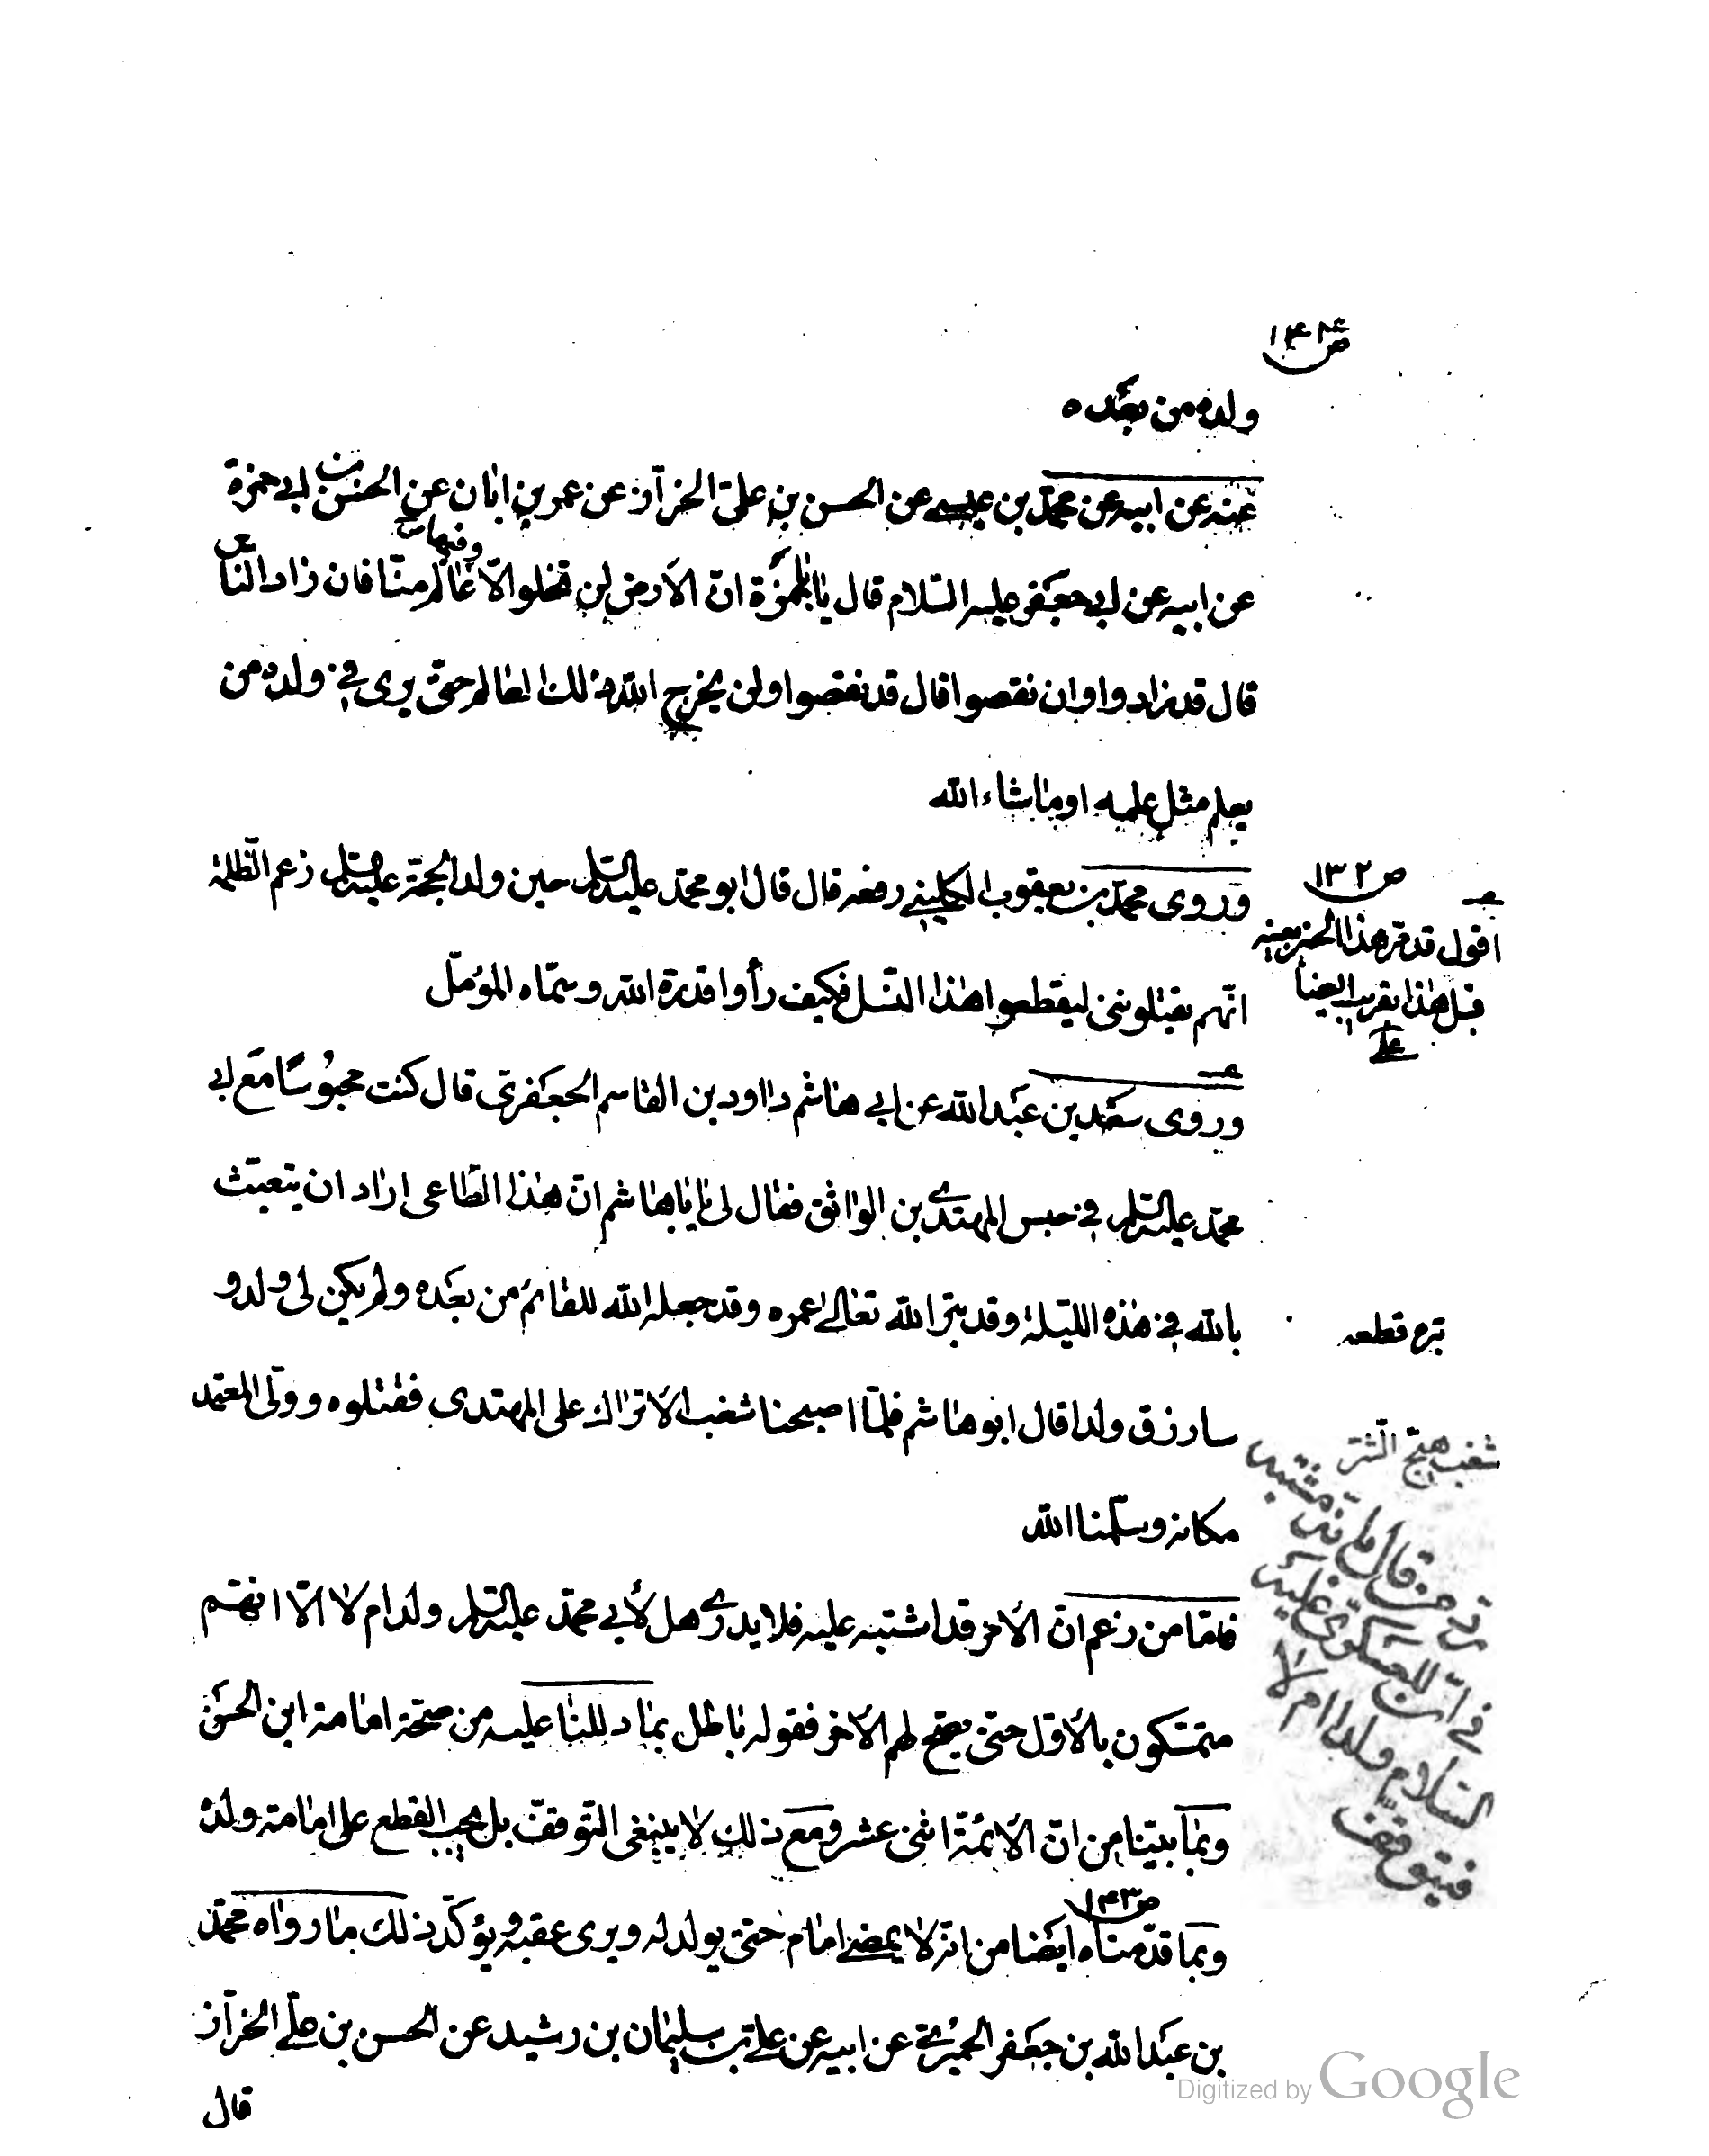 ص ١٤٢
ولده من بعده
عنه عن ابيه عن محمد بن عيسى عن الحسن بن علي الخزاز عن عمر بن ابان عن الحسن بن ابي حمزة
عن ابيه عن ابي جعفر عليه السلام قال يا باحمزة ان الارض لن تخلو الا وفيها عالم منا فان زاد الناس
قال قد زادوا وان نقصوا قال قد نقصوا ولن يخرج الله ذلك العالم حتى يرى في ولده من
يعلم مثل علمه او ما شاء الله
وروى محمد بن يعقوب الكليني رفعه قال قال ابو محمد عليه السلام حين ولد الحجة عليه السلام زعم الظلمة
انهم يقتلونني ليقطعوا هذا النسل فكيف رأوا قدرة الله وسماه المؤمل
ص ١٣٢
اقول قد مر هذا الخبر بعينه
قبل هذا بقريب ايضا
وروى سعد بن عبد الله عن ابي هاشم داود بن القاسم الجعفري قال كنت محبوسا مع ابي
محمد عليه السلام في حبس المهتدي بن الواثق فقال لي يا باهاشم ان هذا الطاغى اراد ان يتعبث
بالله في هذه الليلة وقد بتر الله تعالى عمره وقد جعله الله للقائم من بعده ولم يكن لي ولد و
بتره قطعه
سارزق ولدا قال ابو هاشم فلما اصبحنا شغب الاتراك على المهتدى فقتلوه وولى المعتمد
شغب هيج الشر
مكانه وسلمنا الله
فاما من زعم ان الامر قد اشتبه عليه فلا يدري هل لأبي محمد عليه السلام ولد ام لا الا انهم
متمسكون بالاول حتى يصح لهم الآخر فقوله باطل بما دللنا عليه من صحة امامة ابن الحسن
وبما بينا من ان الأئمة اثنى عشر ومع ذلك لا ينبغى التوقف بل يجب القطع على امامة ولده
ص ١٤٣
وبما قدمناه ايضا من انه لا يمضى امام حتى يولد له ويرى عقبه ويؤكد ذلك ما رواه محمد
بن عبد الله بن جعفر الحميري عن ابيه عن علي بن سليمان بن رشيد عن الحسن بن علي الخزاز
قال
من قال بانه مشتبه
في ان للعسكري عليه
السلام ولدا ام لا
فيتوقف
Digitized by Google